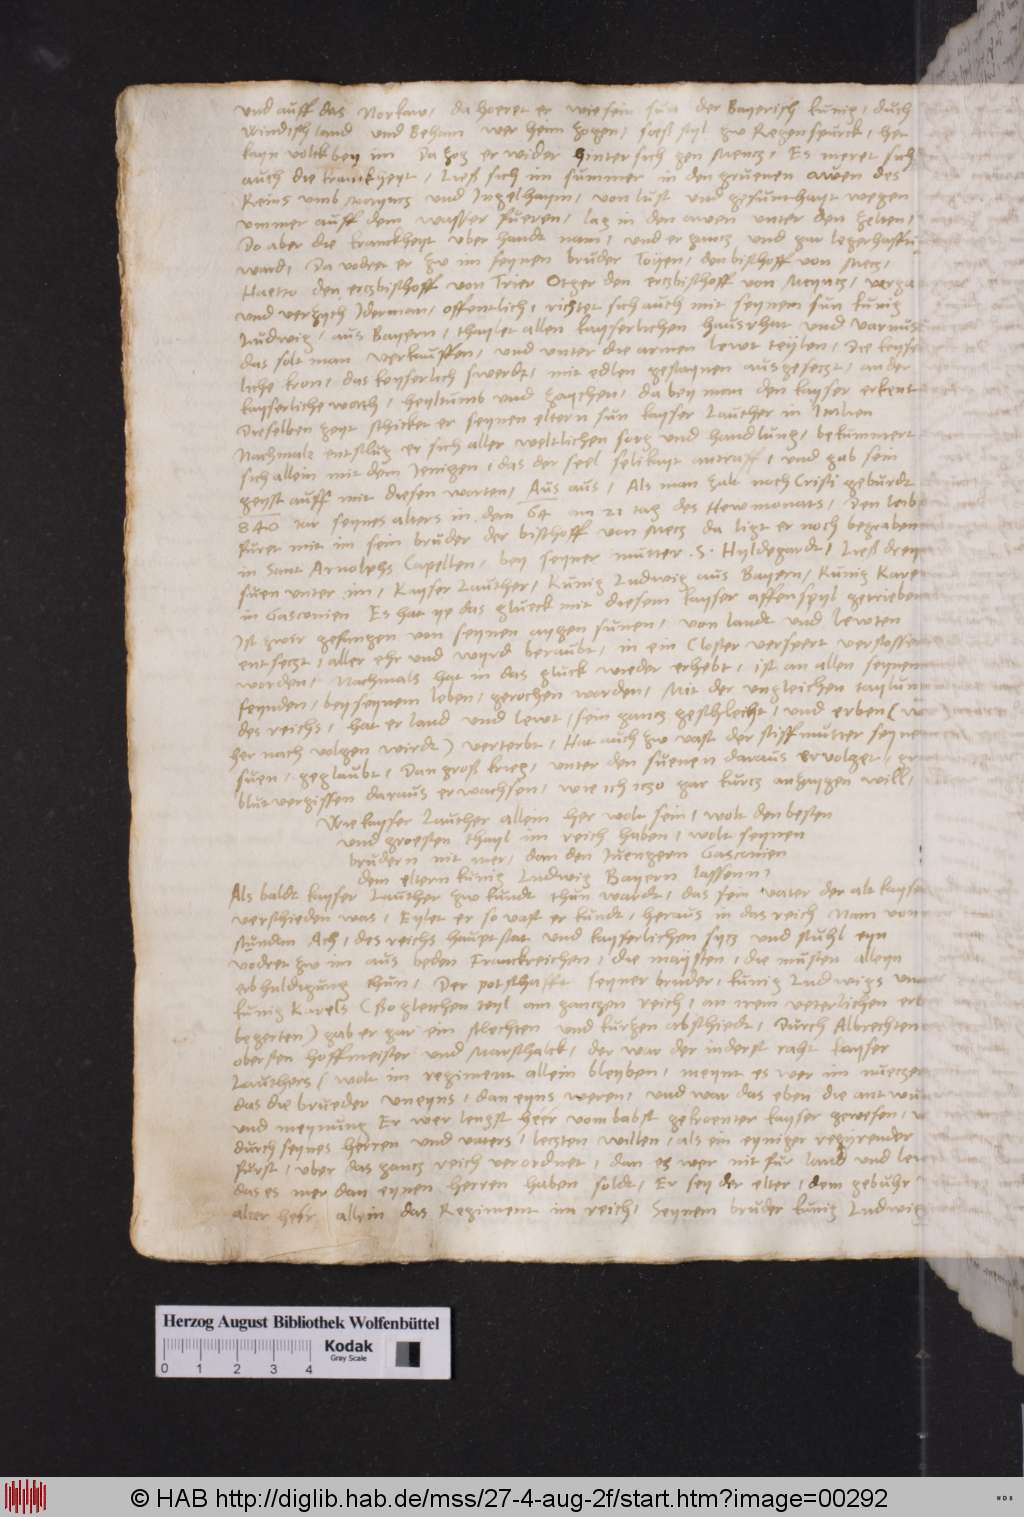 und auff das Norkaw / da hoeret er wie sein sun der Bayerisch kunig / duch
Windisch land und Beham wer heim zogen / saeß styl zw Regenspurck / het
kayn volck bey im Da zog er wider hinter sich gen Mencz / Es meret sich
auch die kranckheyt / Ließ sich im summer in den gruenen awen des
Reins umb Mayncz und Ingelhaym / von lust und gesunthayt wegen
ummer auff dem wasser fueren / lag in den awen unter den zelten /
Do aber die kranckheyt uber handt nam / und er gancz und gar legerhafftig
ward / Da vodret er zu im seynen bruder den bisthoff von Mecz /
Haetto den erczbisthoff von Trier Otger den erczbisthoff von Mayncz /
und verzych Iderman / offentlich / richtet sich auch mit seynem sun kunig
Ludwig / aus Bayern / thaylet allen kayserlichen hausrhat und varnus
das solt man verkauffen / und unter die armen lewt teylen / Die keyser
liche kron / das keyserlich swerdt / mit edlen gestaynen ausgeseczt / ander
kayserliche / heyltumb und zaychen / da bey man den kayser erkent
Dieselben zeyt schicket er seynem eltern sun kayser Lauther in Italien
Nachmals entslug er sich aller weltlichen sorg und handlung / bekummert
sich allein mit dem Jenigen / das der seel selikayt antraff / und gab sein
geyst auff mit diesen worten / Aus aus / Als man zalt noch Cristi geburdt
840 Iar seynes alters in dem 64 am 21 tag des Hewmonats / Den leib
furet mit im sein bruder der bisthoff von Mecz da ligt er noch begraben
in Sant Arnolphs Capellen / bey seyner mutter .S. Hyldegardt / Ließ drey
suen unter im / Kayser Lauther / Kunig Ludwig aus Bayern / Kunig Karel
in Gasconien Es hat ye das glueck mit diesem kayser affenspyl getrieben
Ist zwir gefangen von seynen aygen sunen / von landt und lewten
entseczt / aller ehr und wyrd beraubt / in ein Closter verspert verstossen
worden / Nachmals hat in das gluck wieder erhebt / ist an allen seynen
feynden / bey seynem leben / gerochen worden / Mit der ungleichen taylung
des reichs / hat er land und lewt / sein gancz geschlecht / und erben (
her nach volgen wirdt ) verterbt / Hat auch zw vast der stiffmutter seyner
suen / geglaubt / Dan groß krieg / unter den suenen daraus ervolget /
blutvergissen daraus erwachsen / wie ich iczo gar kurcz anzaygen will /
Wie kayser Lauther allein her wolt sein / wolt den besten
und groesten thayl im reich haben / wolt seynen
brudern nit mer / dan den Juengern Gasconien
dem eltern kunig Ludwig Bayern lassenn /
Als baldt kayser Lauther zw kundt thun wardt / das sein vater der alt kayser
verschieden was / Eylet er so vast er kundt / heraus in das reich Nam von
stundan Ach / des reichs hauptstat und kayserlichen sycz und stuhl eyn
vodret zw im aus beden Franckreichen / die maysten / die musten alleyn
erbhuldigung thun / Der potschafft seyner bruder / kunig Ludwigs und
kunig Karels ( so gleichen teyl am ganczen reich / an irem veterlichen erb
begerten ) gab er gar ein slechten und kurzen abschiedt / Durch Albrechten
obersten hoffmeister und Marschalck / der war der inderst raht kayser
Lauthers ( wolt im regiment allein bleyben / meynt es wer im nueczer
das die brueder uneyns / dan eyns weren / und war das eben die antwurt
und meynung Er wer lengst herr vom babst gekroenter kayser gewesen /
durch seynes herren und vaters / leczten willen / als ein eyniger regyrender
furst / uber das gancz reich verordnet / dan es wer nit fur land und lewt
das es mer dan eynen herren haben soldt / Er sey der elter / dem gebuhr
alcer herr allein das Regiment im reich / Seynem bruder kunig Ludwig
Herzog August Bibliothek Wolfenbüttel
Kodak
Gray Scale
0 1 2 3 4
© HAB http://diglib.hab.de/mss/27-4-aug-2f/start.htm?image=00292